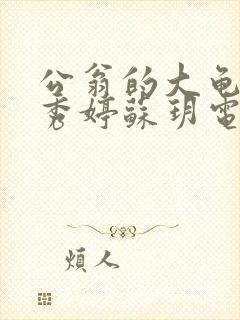 公翁的大龟
秀婷蘇玥電
煩人